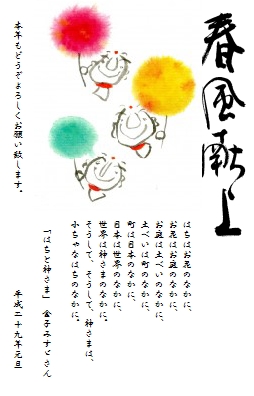 春風献上
はちはお花のなかに、
お花はお庭のなかに、
お庭は土べいのなかに、
土べいは町のなかに、
町は日本のなかに、
日本は世界のなかに、
世界は神さまのなかに。
そうして、そうして、神さまは、
小ちゃなはちのなかに。
「はちと神さま」 金子みすゞさん
平成二十九年元旦
本年もどうぞよろしくお願い致します。